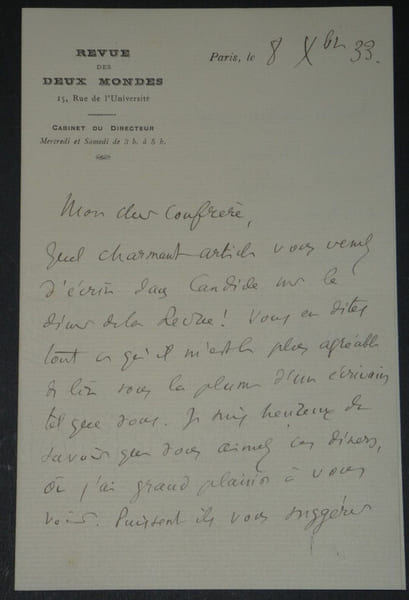 REVUE
DES
DEUX MONDES
15, Rue de l'Université
CABINET DU DIRECTEUR
Mercredi et Samedi de 3 h. à 5 h.
Paris, le 8 Xbre 33.
Mon cher Confrère,
Quel charmant article vous venez
d'écrire dans Candide sur le
dîner de la Revue! Vous en dites
tout ce qu'il m'est le plus agréable
de lire sous la plume d'un écrivain
tel que vous. Je suis heureux de
savoir que vous aimez ces dîners,
où j'ai grand plaisir à vous
voir. Puissent ils vous suggérer